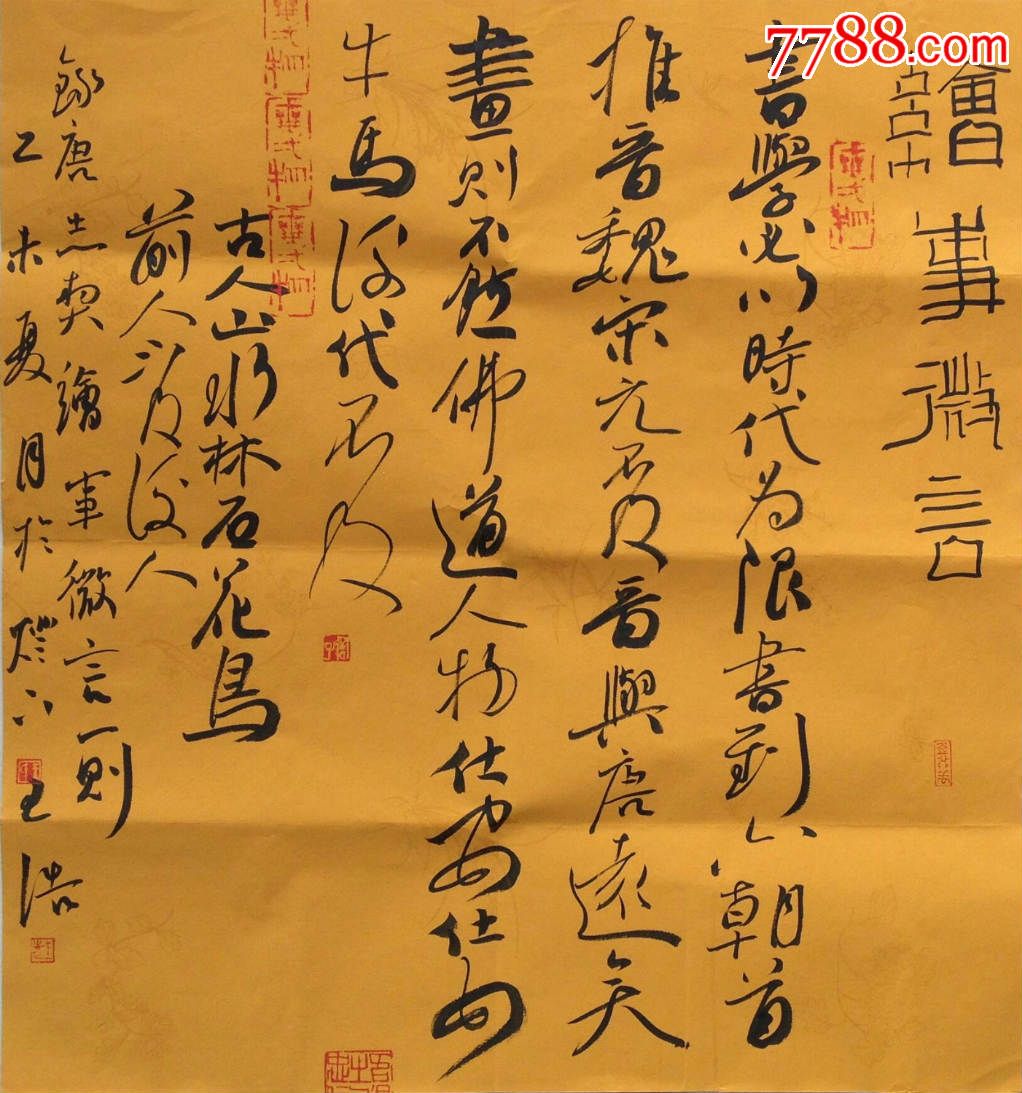 7788.com
繪事微言
書學必以時代为限書到六朝首
推晉魏宋元不及晉與唐遠矣
畫則不然佛道人物仕女
牛馬後代不及
古人山水林石花鳥
前人不及後人
錄唐志契繪事微言一則
乙未夏月於燈下王浩